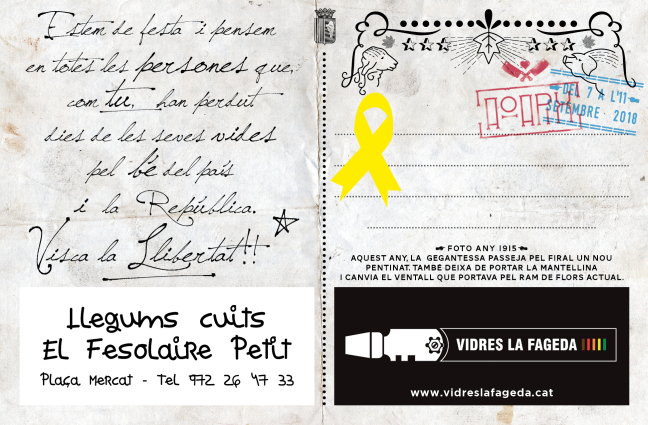 Estem de festa i pensem
en totes les persones que,
com tu, han perdut
dies de les seves vides
pel bé del país
i la República.
Visca la Llibertat!!
Llegums cuits
El Fesolaire Petit
Plaça Mercat - Tel 972 26 47 33
DEL 7 A L'11
SETEMBRE · 2018
FOTO ANY 1915
AQUEST ANY, LA GEGANTESSA PASSEJA PEL FIRAL UN NOU
PENTINAT. TAMBÉ DEIXA DE PORTAR LA MANTELLINA
I CANVIA EL VENTALL QUE PORTAVA PEL RAM DE FLORS ACTUAL.
VIDRES LA FAGEDA
www.vidreslafageda.cat